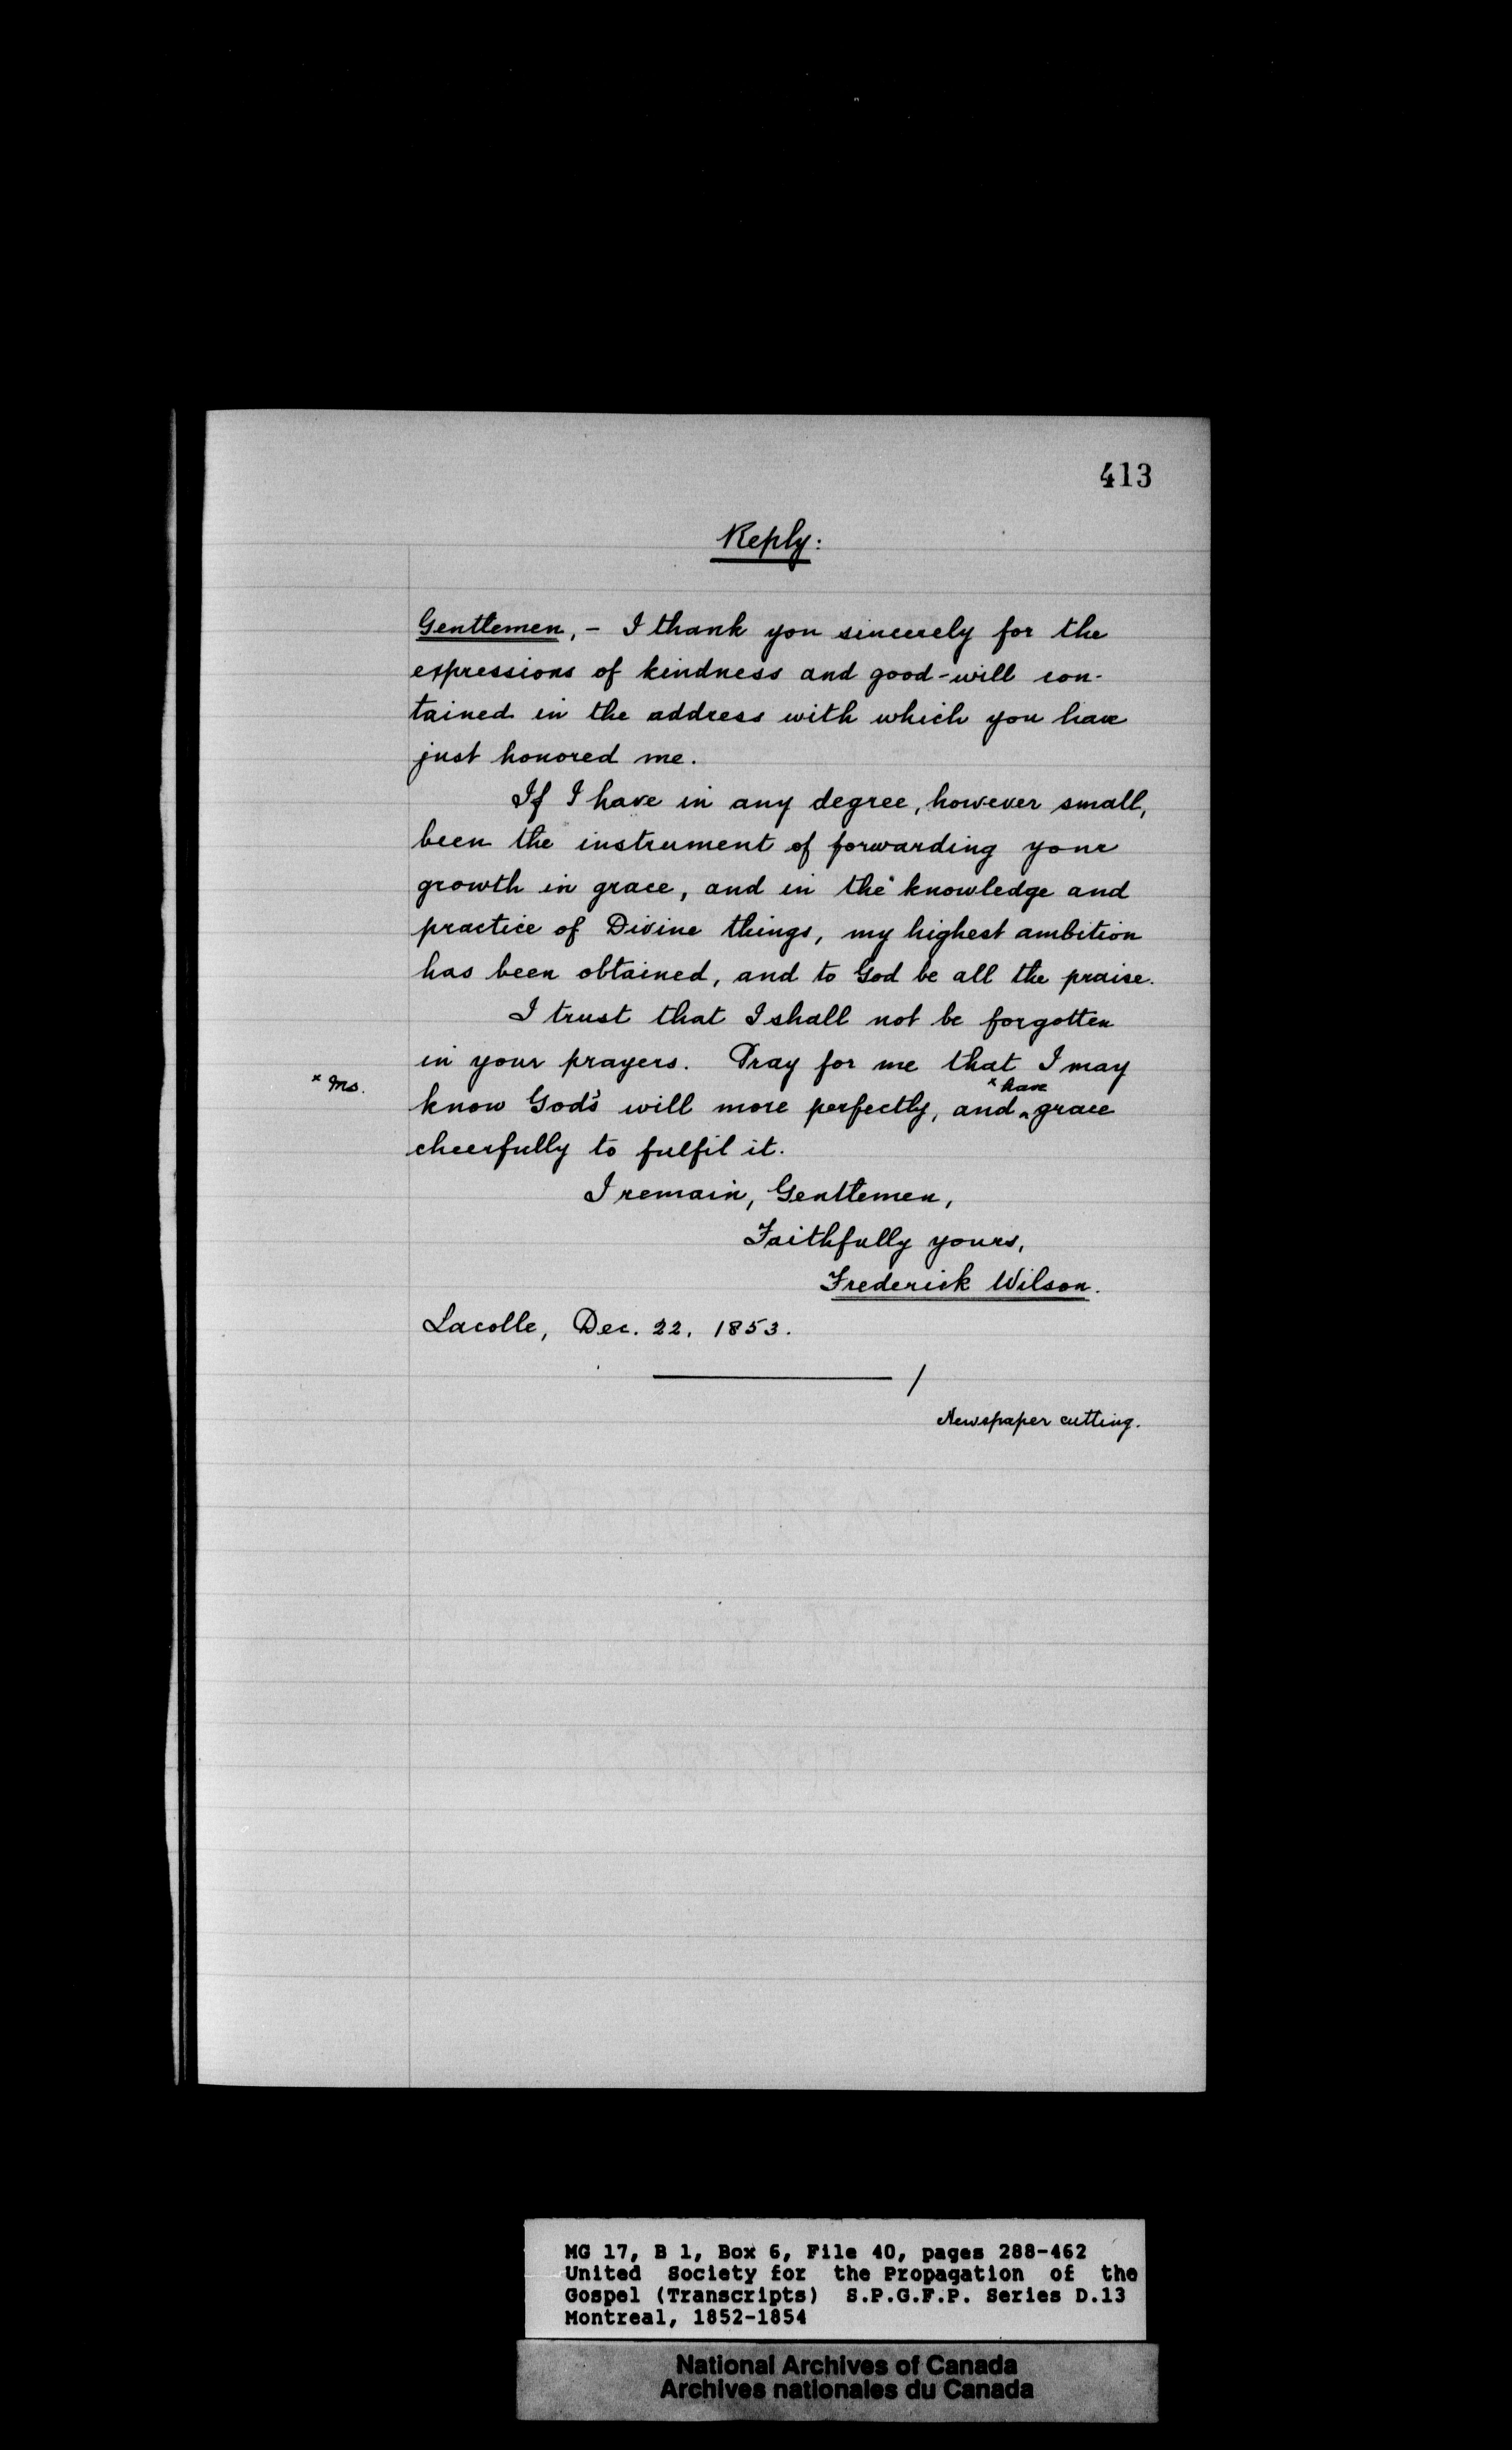 413
Reply:
Gentlemen, - I thank you sincerely for the
expressions of kindness and good-will con-
tained in the address with which you have
just honored me.
If I have in any degree, however small,
been the instrument of forwarding your
growth in grace, and in the knowledge and
practice of Divine things, my highest ambition
has been obtained, and to God be all the praise.
I trust that I shall not be forgotten
in your prayers. Pray for me that I may
x Ms.
x have
know God's will more perfectly, and ^ grace
cheerfully to fulfil it.
I remain, Gentlemen,
Faithfully yours,
Frederick Wilson.
Lacolle, Dec. 22, 1853.
Newspaper cutting.
MG 17, B 1, Box 6, File 40, pages 288-462
United Society for the Propagation of the
Gospel (Transcripts) S.P.G.F.P. Series D.13
Montreal, 1852-1854
National Archives of Canada
Archives nationales du Canada